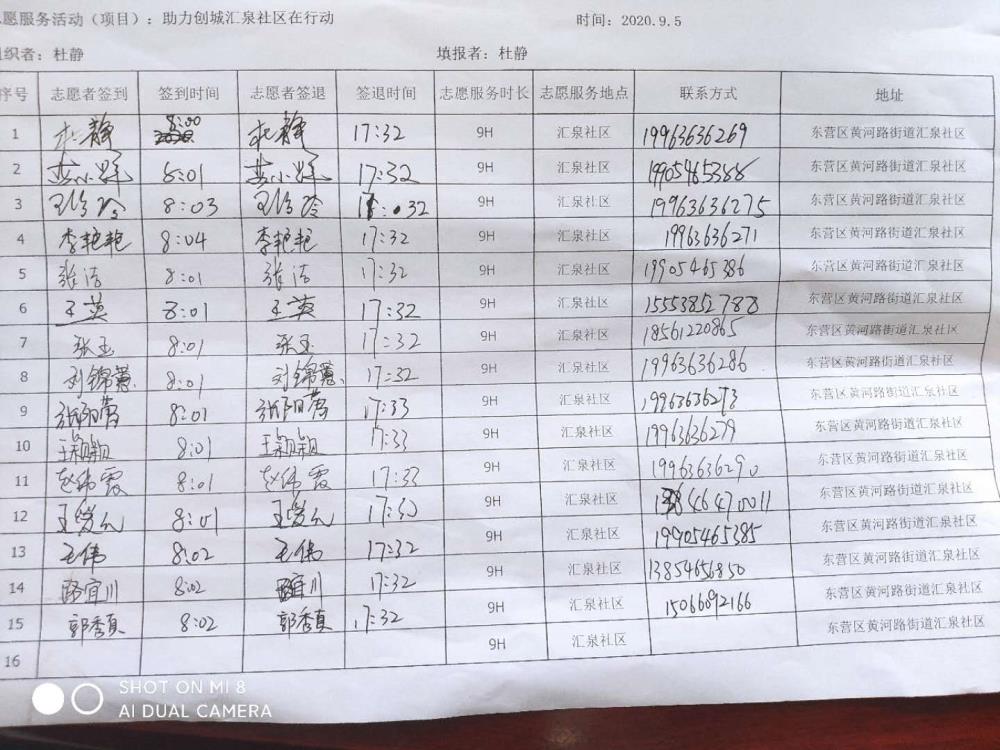 愿服务活动（项目）：助力创城汇泉社区在行动 时间：2020.9.5
组织者：杜静 填报者：杜静
序号 志愿者签到 签到时间 志愿者签退 签退时间 志愿服务时长 志愿服务地点 联系方式 地址
1 杜静 8:00 杜静 17:32 9H 汇泉社区 19963636269 东营区黄河路街道汇泉社区
2 8:01 17:32 9H 汇泉社区 19905465388 东营区黄河路街道汇泉社区
3 8:03 17:32 9H 汇泉社区 19963636275 东营区黄河路街道汇泉社区
4 李艳艳 8:04 李艳艳 17:32 9H 汇泉社区 19963636271 东营区黄河路街道汇泉社区
5 张洁 8:01 张洁 17:32 9H 汇泉社区 19905465386 东营区黄河路街道汇泉社区
6 王英 8:01 王英 17:32 9H 汇泉社区 15553852788 东营区黄河路街道汇泉社区
7 张玉 8:01 张玉 17:32 9H 汇泉社区 18561220865 东营区黄河路街道汇泉社区
8 刘锦慧 8:01 刘锦慧 17:32 9H 汇泉社区 19963636286 东营区黄河路街道汇泉社区
9 8:01 17:33 9H 汇泉社区 19963636273 东营区黄河路街道汇泉社区
10 王颖颖 8:01 王颖颖 17:33 9H 汇泉社区 19963636279 东营区黄河路街道汇泉社区
11 赵伟霞 8:01 赵伟霞 17:33 9H 汇泉社区 19963636290 东营区黄河路街道汇泉社区
12 8:01 17:32 9H 汇泉社区 东营区黄河路街道汇泉社区
13 王伟 8:02 王伟 17:32 9H 汇泉社区 19905465385 东营区黄河路街道汇泉社区
14 路宜川 8:02 路宜川 17:32 9H 汇泉社区 13854656850 东营区黄河路街道汇泉社区
15 郭秀真 8:02 郭秀真 17:32 9H 汇泉社区 15066092166 东营区黄河路街道汇泉社区
16 9H 汇泉社区 东营区黄河路街道汇泉社区
SHOT ON MI 8
AI DUAL CAMERA